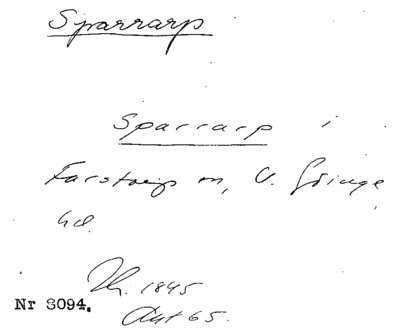 Sparrarp
Sparrarp i
Farstorps sn, V. Göinge
hd.
1845
Ant 65.
Nr 3094.